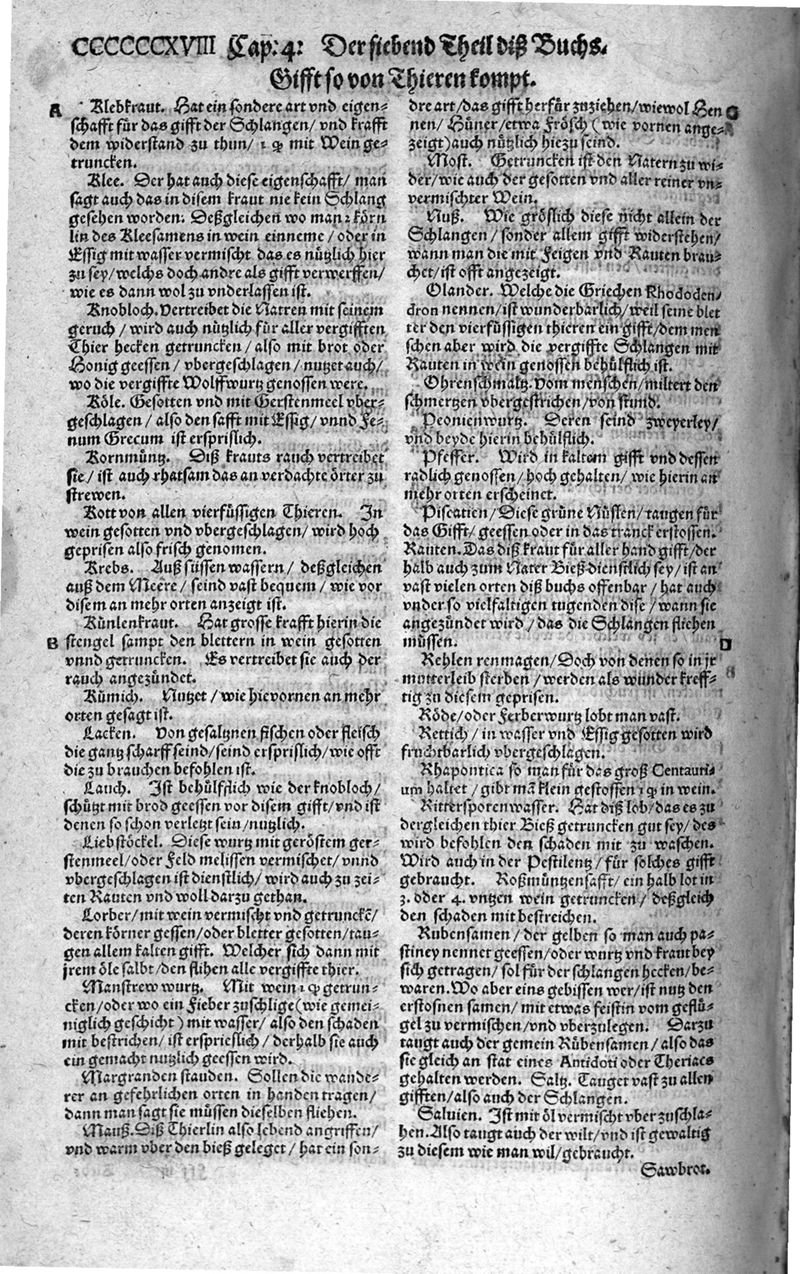 CCCCCCCXVIII Cap: 4: Der siebend Theil diß Buchs.
Gifft so von Thieren kompt.
A Klebkraut. Hat ein sondere art vnd eigen-
schafft für das gifft der Schlangen/ vnd krafft
dem widerstand zu thun/ mit Wein ge-
truncken.
Klee. Der hat auch diese eigenschafft/ man
sagt auch das in disem kraut nie kein Schlang
gesehen worden. Deßgleichen wo man 2 körn
lin des Kleesamens in wein einneme/ oder in
Essig mit wasser vermischt das es nützlich hier
zu sey/ welchs doch andre als gifft verwerffen/
wie es dann wol zu vnderlassen ist.
Knobloch. Vertreibet die Natren mit seinem
geruch/ wird auch nützlich für aller vergifften
Thier hecken getruncken/ also mit brot oder
Honig geessen/ vbergeschlagen/ nutzet auch/
wo die vergiffte Wolffwurtz genossen were.
Köle. Gesotten vnd mit Gerstenmeel vber-
geschlagen/ also den safft mit Essig/ vnnd Fe-
num Grecum ist ersprislich.
Kornmüntz. Diß krauts rauch vertreibet
sie/ ist auch rhatsam das an verdachte örter zu
strewen.
Kott von allen vierfüssigen Thieren. In
wein gesotten vnd vbergeschlagen/ wird hoch
geprisen also frisch genomen.
Krebs. Auß süssen wassern/ deßgleichen
auß dem Meere/ seind vast bequem/ wie vor
disem an mehr orten anzeigt ist.
Künlenkraut. Hat grosse krafft hierin die
B stengel sampt den blettern in wein gesotten
vnnd getruncken. Es vertreibet sie auch der
rauch angezündet.
Kümich. Nutzet/ wie hievornen an mehr
orten gesagt ist.
Lacken. Von gesaltznen fischen oder fleisch
die gantz scharff seind/ seind ersprislich/ wie offt
die zu brauchen befohlen ist.
Lauch. Ist behülflich wie der knobloch/
schützt mit brod geessen vor disem gifft/ vnd ist
denen so schon verletzt sein/ nutzlich.
Liebstöckel. Diese wurtz mit geröstem ger-
stenmeel/ oder Feld melissen vermischet/ vnnd
vbergeschlagen ist dienstlich/ wird auch zu zei-
ten Rauten vnd woll darzu gethan.
Lorber/ mit wein vermischt vnd getrunckẽ/
deren körner gessen/ oder bletter gesotten/ tau-
gen allem kalten gifft. Welcher sich dann mit
jrem öle salbt/ den flihen alle vergiffte thier.
Manstrew wurtz. Mit wein getrun-
cken/ oder wo ein Fieber zuschlige (wie gemei-
niglich geschicht) mit wasser/ also den schaden
mit bestrichen/ ist erspieslich/ derhalb sie auch
ein gemacht nutzlich geessen wird.
Margranden stauden. Sollen die wande-
rer an gefehrlichen orten in handen tragen/
dann man sagt sie müssen dieselben fliehen.
Mauß. Diß Thierlin also lebend angriffen/
vnd warm vber den bieß geleget/ hat ein son-
dre art/ das gifft herfür zuziehen/ wiewol Hen C
nen/ Hüner/ etwa Frösch (wie vornen ange-
zeigt) auch nützlich hiezu seind.
Most. Getruncken ist den Natern zu wi-
der/ wie auch der gesotten vnd aller reiner vn-
vermischter Wein.
Nuß. Wie gröslich diese nicht allein der
Schlangen/ sonder allem gifft widerstehen/
wann man die mit Feigen vnd Rauten brau-
chet/ ist offt angezeigt.
Olander. Welche die Griechen Rhododen-
dron nennen/ ist wunderbarlich/ weil seine blet
ter den vierfüssigen thieren ein gifft/ dem men
schen aber wird die vergiffte Schlangen mit
Rauten in wein genossen behülflich ist.
Ohrenschmaltz. Vom menschen/ miltert den
schmertzen vbergestrichen/ von stund.
Peonienwurtz. Deren seind zweyerley/
vnd beyde hierin behülflich.
Pfeffer. Wird in kaltem gifft vnd dessen
radlich genossen/ hoch gehalten/ wie hierin an
mehr orten erscheinet.
Piscatien/ Diese grüne Nüssen/ taugen für
das Gifft/ geessen oder in das tranck erstossen.
Rauten. Das diß kraut für aller hand gifft/ der
halb auch zum Nater Bieß dienstlich sey/ ist an
vast vielen orten diß buchs offenbar/ hat auch
vnder so vielfaltigen tugenden dise/ wann sie
angezündet wird/ das die Schlangen fliehen
müssen. D
Rehlen renmagen/ Doch von denen so in jr
motterleib sterben/ werden als wunder kreff-
tig zu diesem geprisen.
Röde/ oder Ferberwurtz lobt man vast.
Rettich/ in wasser vnd Essig gesotten wird
fruchtbarlich vbergeschlagen.
Rhapontica so man für das groß Centauri-
um haltet/ gibt mã klein gestossen in wein.
Rittersporen wasser. Hat diß lob/ das es zu
dergleichen thier Bieß getruncken gut sey/ des
wird befohlen den schaden mit zu waschen.
Wird auch in der Pestilentz/ für solches gifft
gebraucht. Roßmüntzensafft/ ein halb lot in
3. oder 4. vntzen wein getruncken/ deßgleich
den schaden mit bestreichen.
Rubensamen/ der gelben so man auch pa-
stiney nennet geessen/ oder wurtz vnd kraut bey
sich getragen/ sol für der schlangen hecken/ be-
waren. Wo aber eins gebissen wer/ ist nutz den
erstosnen samen/ mit etwas feistin vom geflü-
gel zu vermischen/ vnd vberzulegen. Darzu
taugt auch der gemein Rübensamen/ also das
sie gleich an stat eines Antidoti oder Theriacs
gehalten werden. Saltz. Tauget vast zu allen
gifften/ also auch der Schlangen.
Saluien. Ist mit öl vermischt vber zuschla-
hen. Also taugt auch der wilt/ vnd ist gewaltig
zu diesem wie man wil/ gebraucht.
Sawbrot.